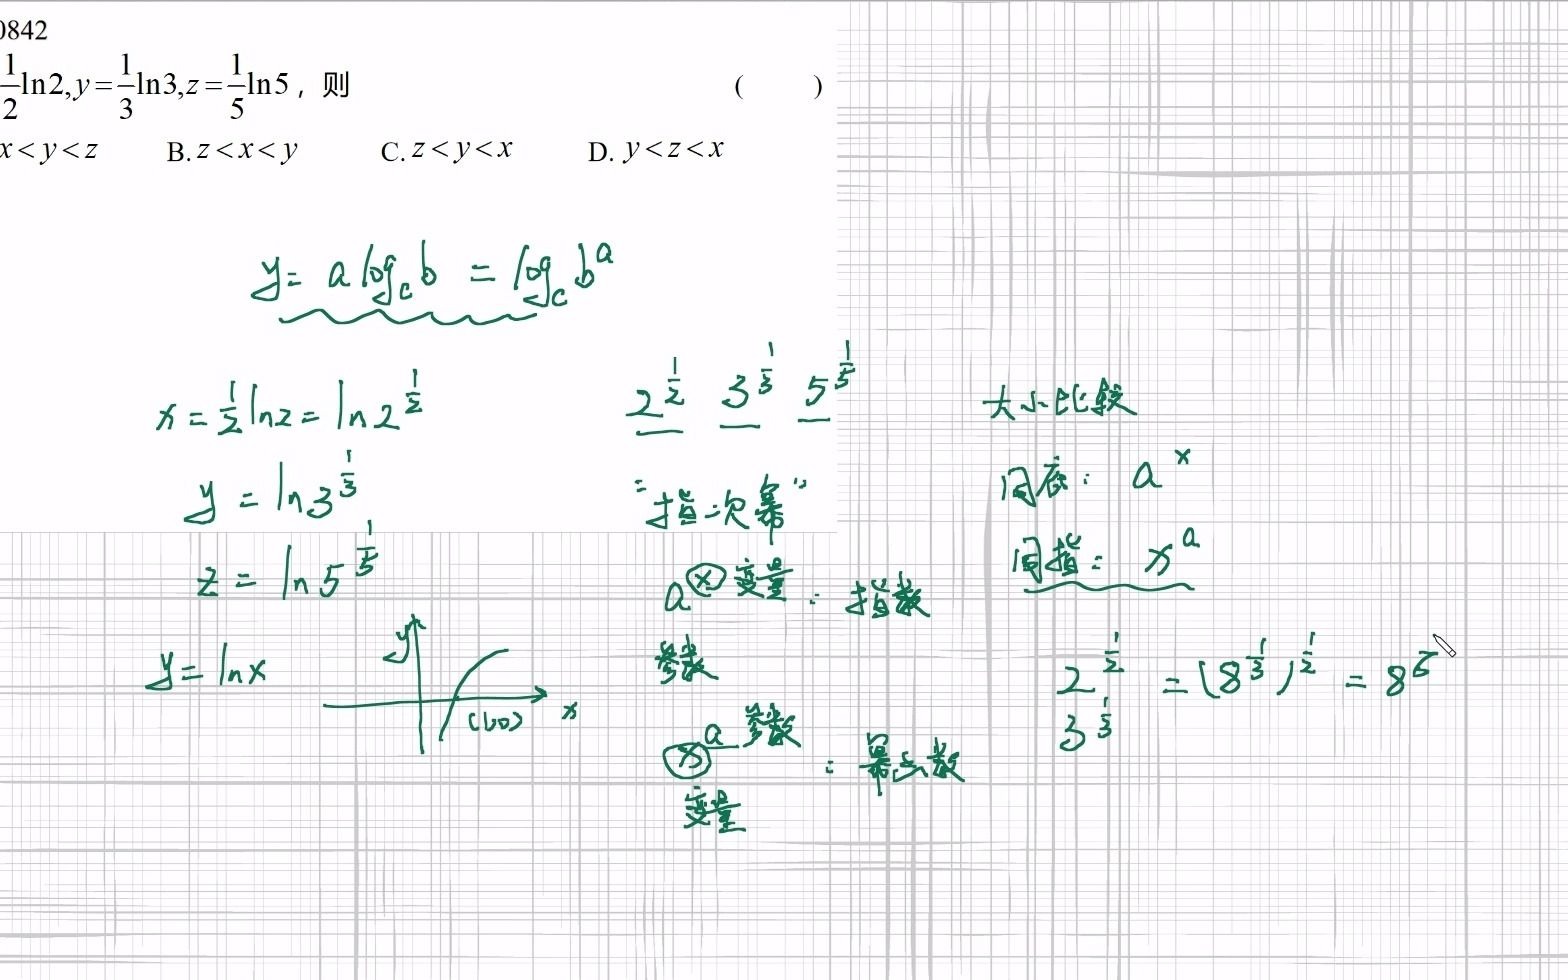 0842
1/2 ln2, y = 1/3 ln3, z = 1/5 ln5，则 ( )
x < y < z B. z < x < y C. z < y < x D. y < z < x
y = a log_c b = log_c b^a
x = 1/2 ln2 = ln 2^(1/2)
y = ln 3^(1/3)
z = ln 5^(1/5)
y = ln x
y
(1,0)
x
2^(1/2) 3^(1/3) 5^(1/5)
"指、次幂"
a^x 变量：指数
参数
x^a 参数：幂函数
变量
大小比较
同底：a^x
同指：x^a
2^(1/2) = (8^(1/3))^(1/2) = 8
3^(1/3)